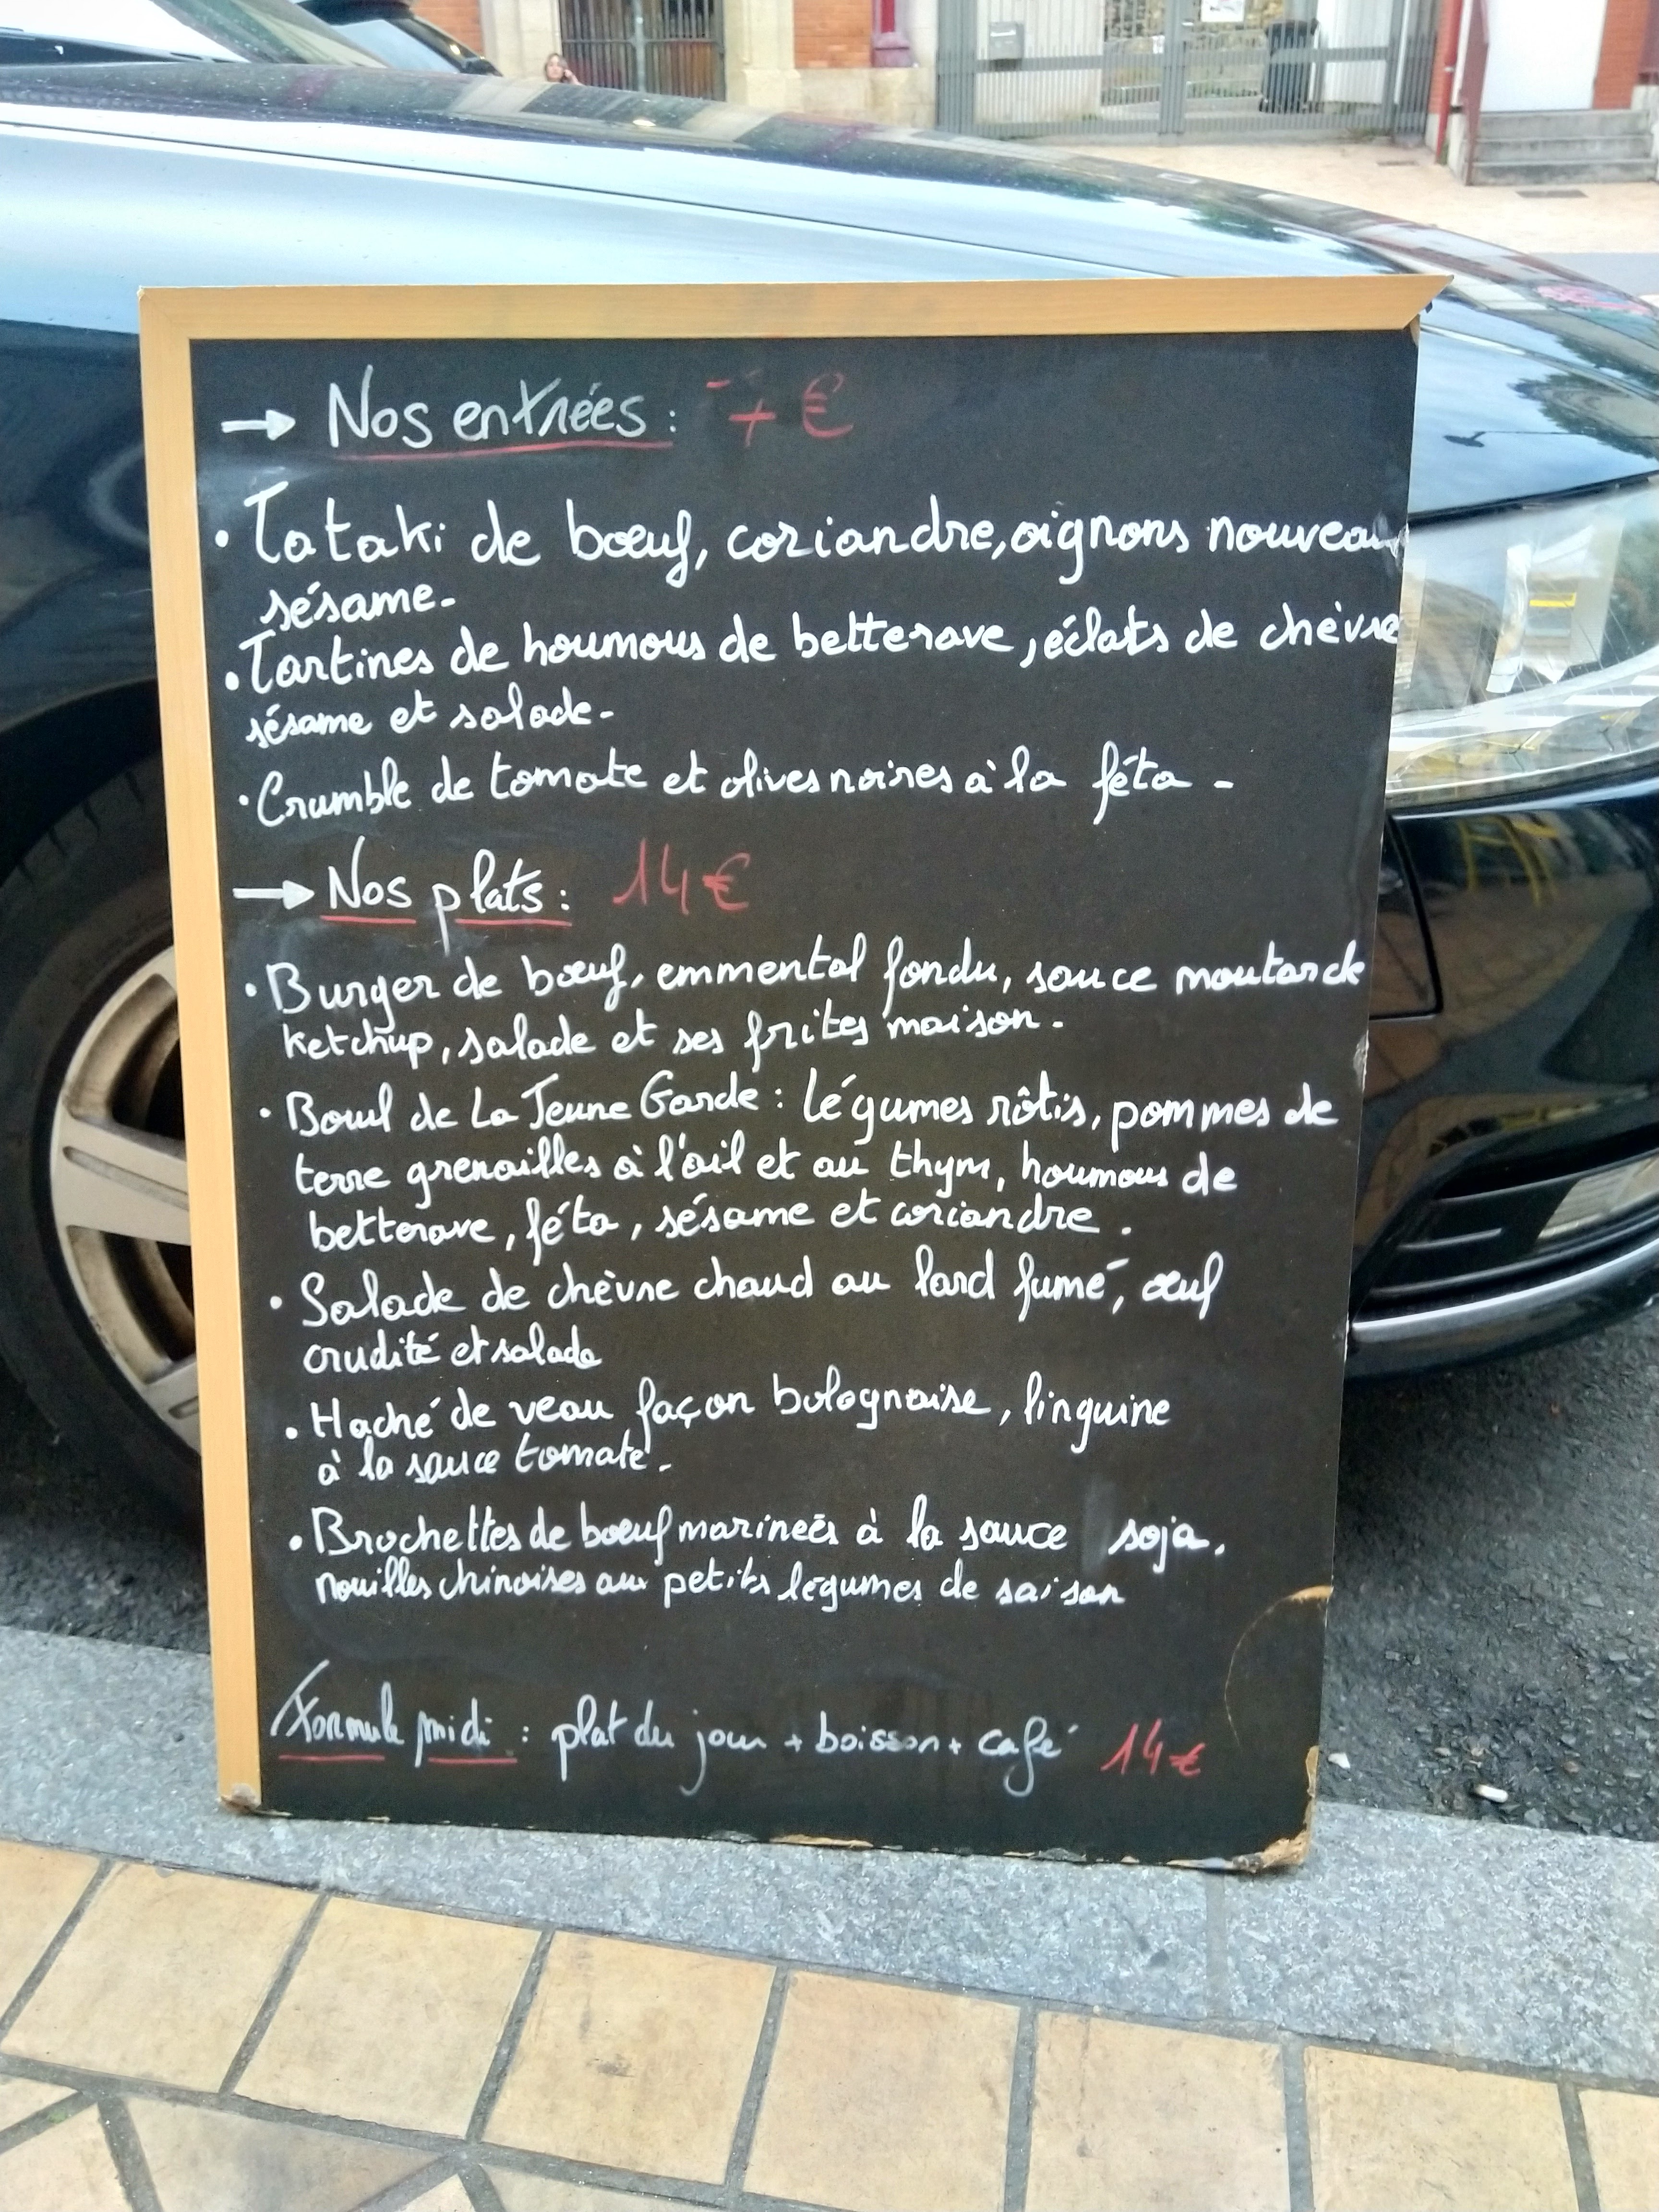 → Nos entrées : 7 €
• Tataki de bœuf, coriandre, oignons nouveau
sésame-
• Tartines de houmous de betterave, éclats de chèvre
sésame et salade-
• Crumble de tomate et olives noires à la féta -
→ Nos plats : 14 €
• Burger de bœuf, emmental fondu, sauce moutarde
ketchup, salade et ses frites maison -
• Bowl de La Jeune Garde : légumes rôtis, pommes de
terre grenailles à l'ail et au thym, houmous de
betterave, féta, sésame et coriandre .
• Salade de chèvre chaud au lard fumé, œuf
crudité et salade
• Haché de veau façon bolognaise, linguine
à la sauce tomate -
• Brochettes de bœuf marineés à la sauce soja,
nouilles chinoises aux petits légumes de saison
Formule midi : plat du jour + boisson + café 14 €